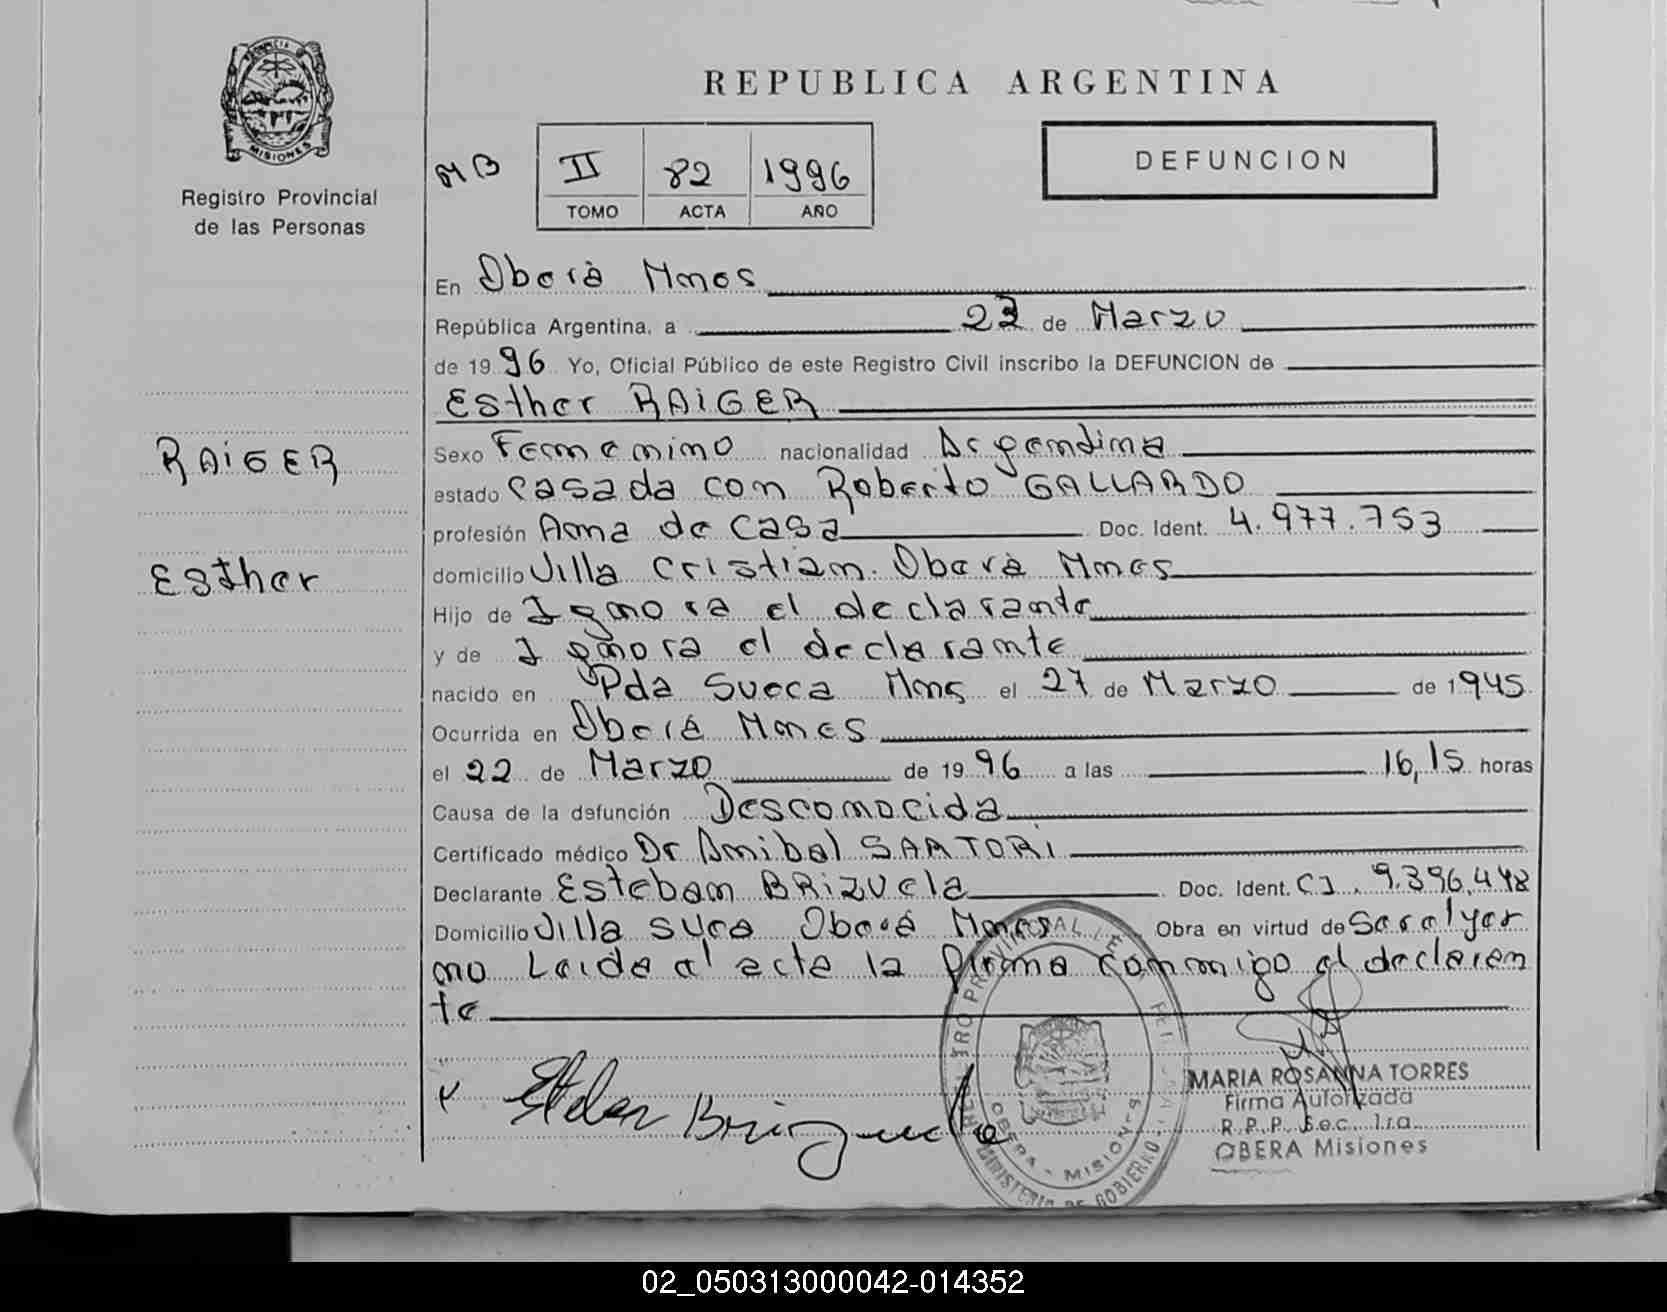 PROVINCIA DE
MISIONES
Registro Provincial
de las Personas
REPUBLICA ARGENTINA
MB
II 82 1996
TOMO ACTA AÑO
DEFUNCION
En Oberà Mnes
República Argentina, a 23 de Marzo
de 1996 Yo, Oficial Público de este Registro Civil inscribo la DEFUNCION de
Esther RAiGER
RAiGER
Esther
Sexo Femenino nacionalidad Argentina
estado casada con Roberto GALLARDO
profesión Ama de casa Doc. Ident. 4.977.753
domicilio Villa Cristian. Oberà Mnes
Hijo de Ignora el declarante
y de Ignora el declarante
nacido en Pda Sueca Mns el 27 de Marzo de 1945
Ocurrida en Oberá Mnes
el 22 de Marzo de 1996 a las 16,15 horas
Causa de la defunción Desconocida
Certificado médico Dr Anibal SARTORi
Declarante Esteban BRiZUela Doc. Ident. CI. 9.396.448
Domicilio Villa Oberá Mnes Obra en virtud de
mo Leida el acta la firma conmigo el declaran
te
REGISTRO PROVINCIAL DE
OBERA - MISIONES
MINISTERIO DE GOBIERNO
MARIA ROSANNA TORRES
Firma Autorizada
R.P.P. Sec. 1ra.
OBERA Misiones
02_050313000042-014352